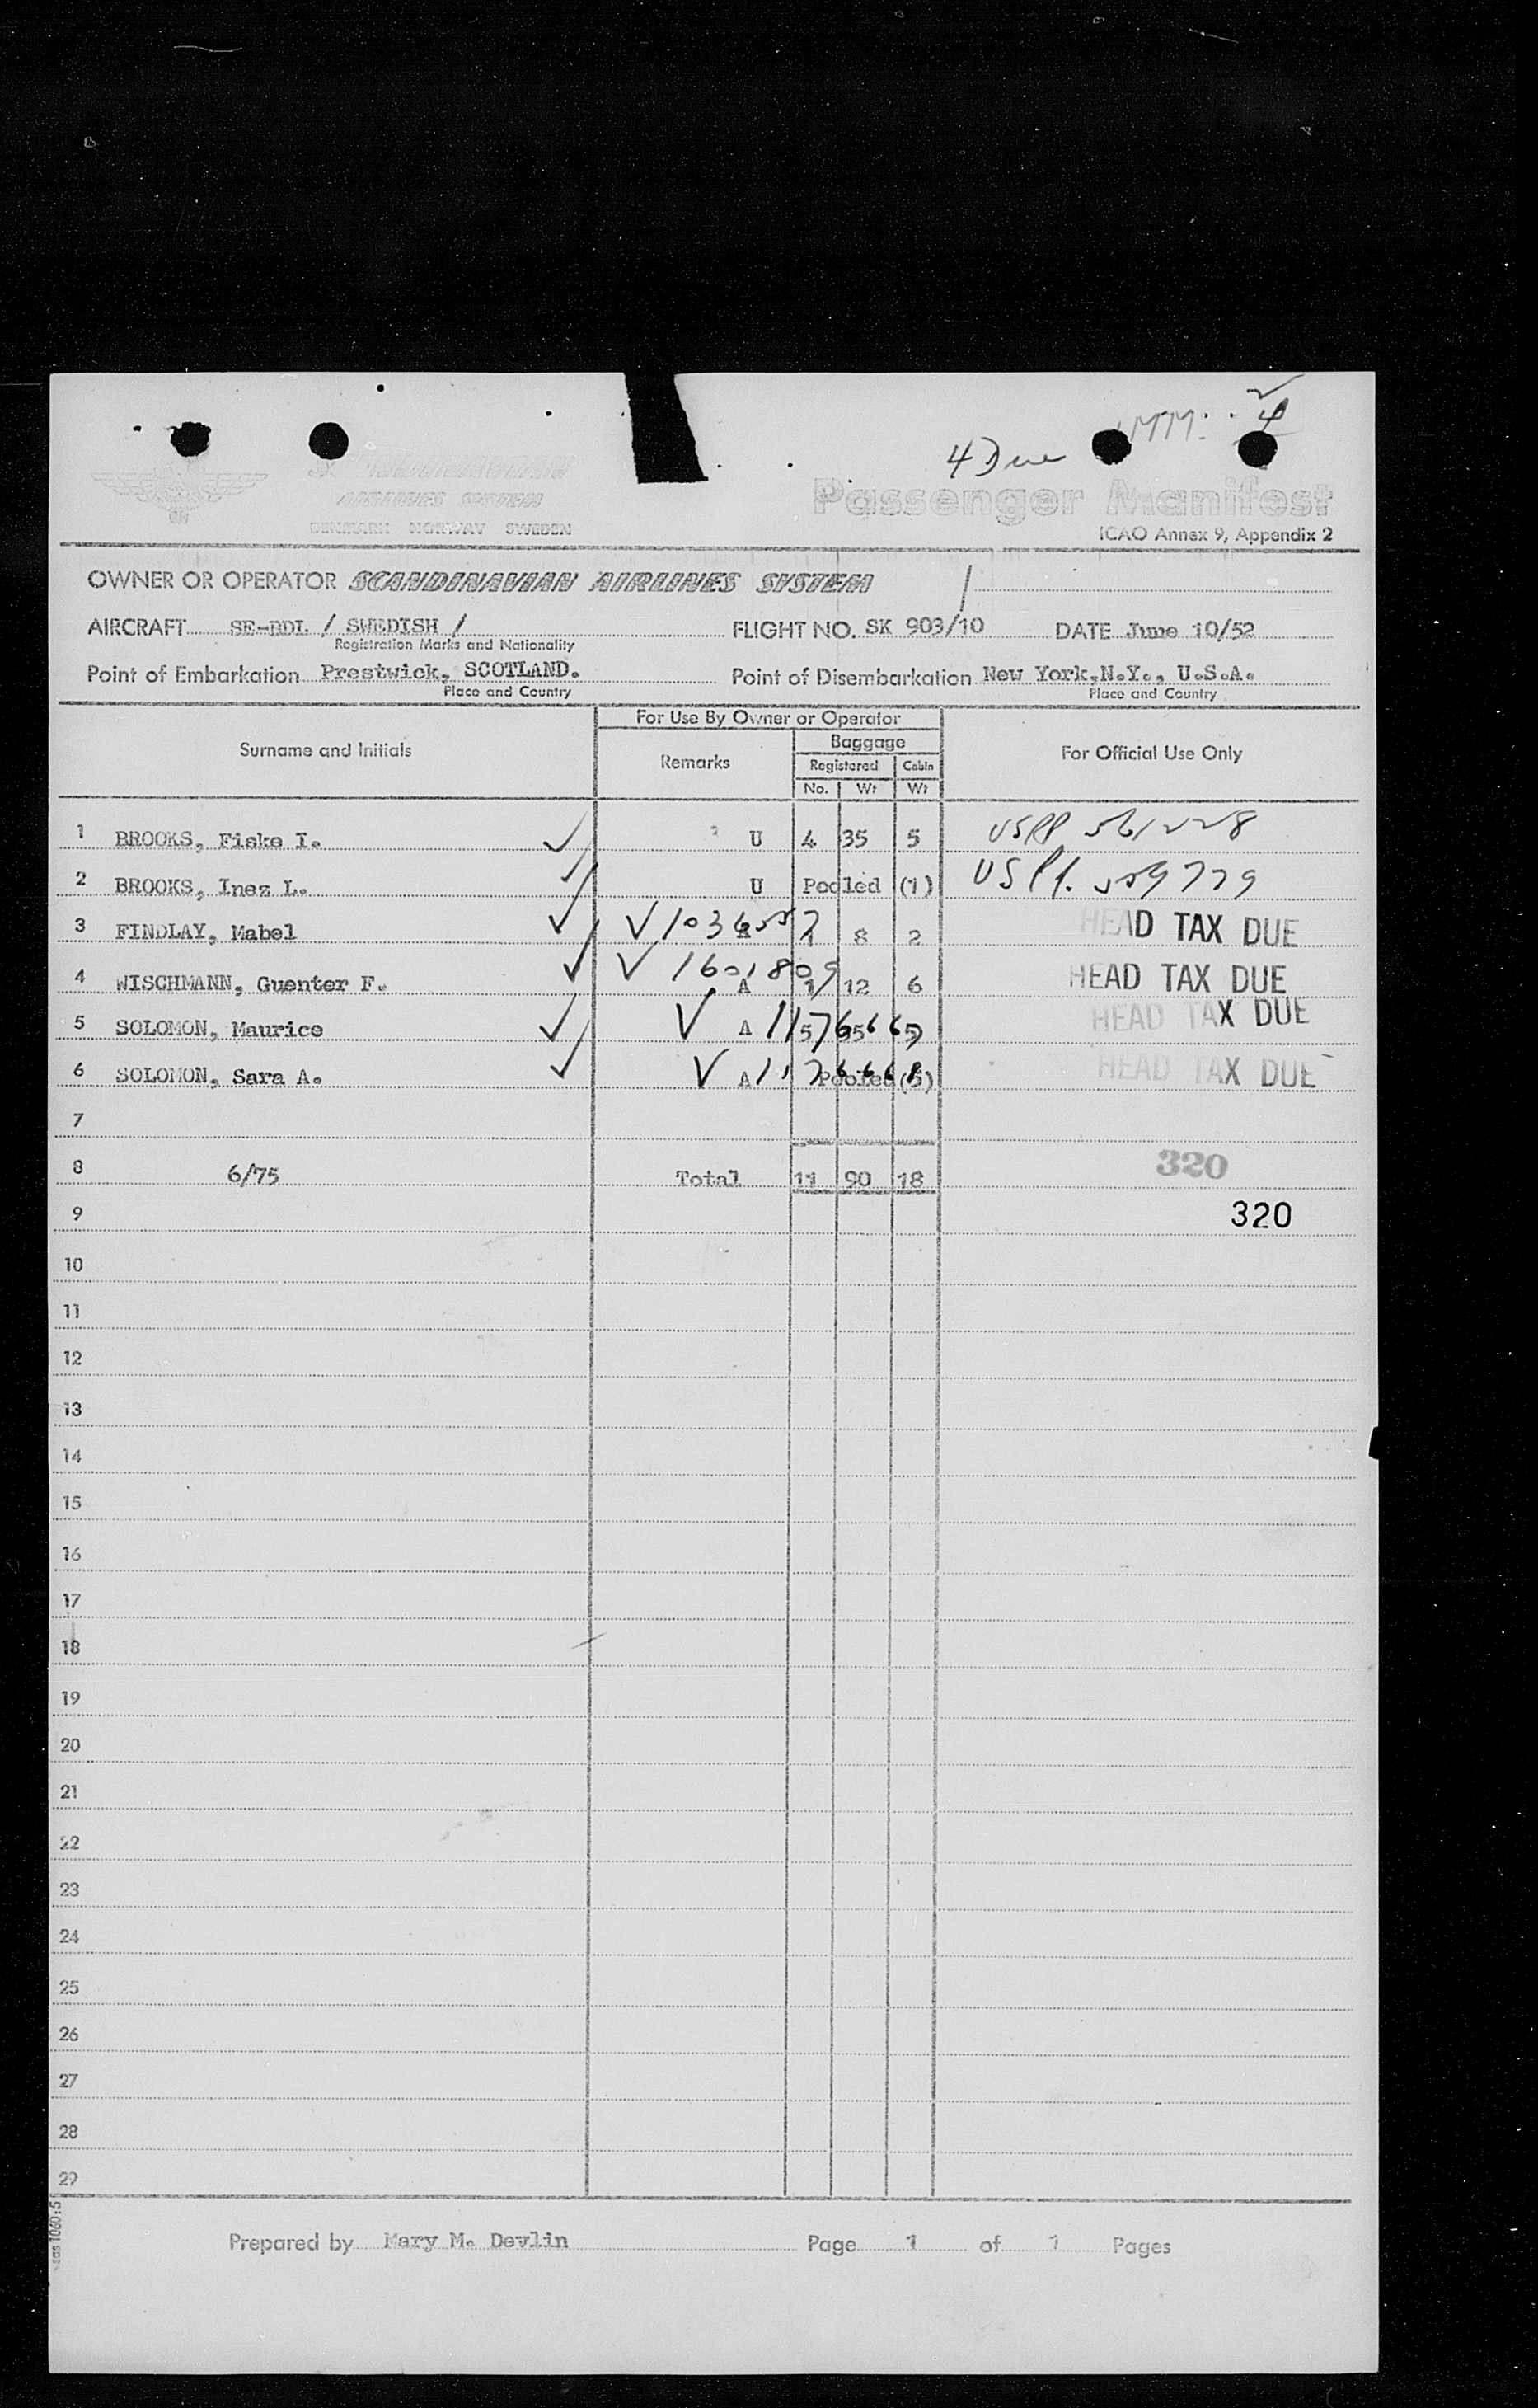 4 Due
MM. 4
AIRLINES SYSTEM
DENMARK NORWAY SWEDEN
Passenger Manifest
ICAO Annex 9, Appendix 2
OWNER OR OPERATOR SCANDINAVIAN AIRLINES SYSTEM
AIRCRAFT SE-BDL / SWEDISH / FLIGHT NO. SK 903/10 DATE June 10/52
Registration Marks and Nationality
Point of Embarkation Prestwick, SCOTLAND. Point of Disembarkation New York,N.Y., U.S.A.
Place and Country Place and Country
For Use By Owner or Operator
Surname and Initials Remarks Baggage For Official Use Only
Registered Cabin
No. Wt Wt
1 BROOKS, Fiske I. U 4 35 5 USPP 561228
2 BROOKS, Inez L. U Pooled (1) USPP. 559779
3 FINDLAY, Mabel V 1036557 A 1 8 2 HEAD TAX DUE
4 WISCHMANN, Guenter F. V 1601809 A 1 12 6 HEAD TAX DUE
5 SOLOMON, Maurice V A 11766667 5 35 5 HEAD TAX DUE
6 SOLOMON, Sara A. V A 1176668 Pooled (5) HEAD TAX DUE
7
8 6/75 Total 11 90 18 320
9 320
10
11
12
13
14
15
16
17
18
19
20
21
22
23
24
25
26
27
28
29
sas 1060:5
Prepared by Mary M. Devlin Page 1 of 1 Pages